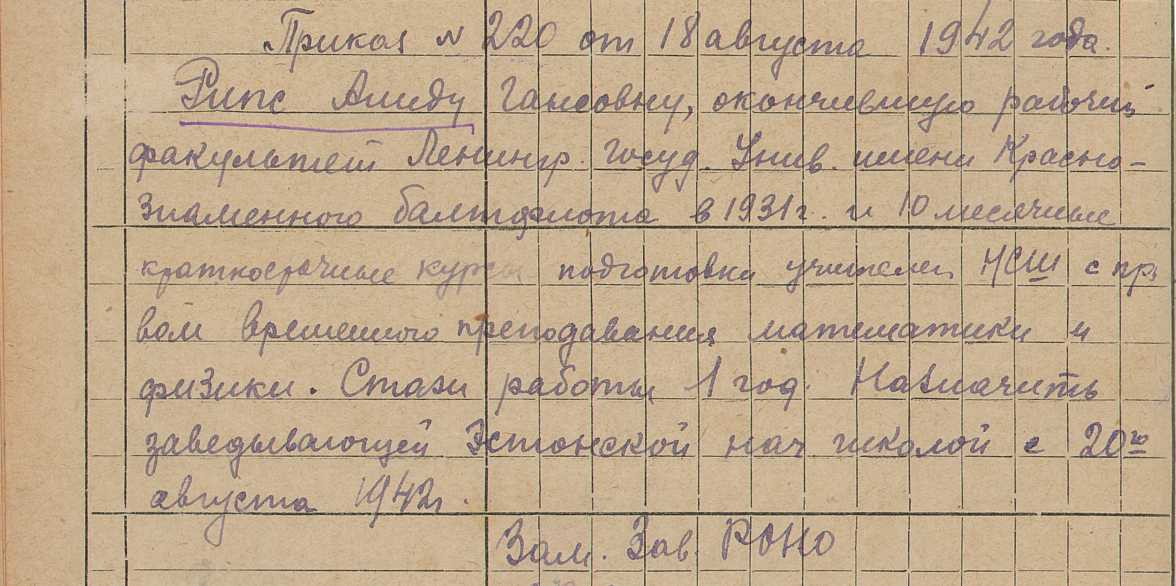 Приказ № 220 от 18 августа 1942 года.
Рипс Алиду Гансовну, окончившую рабочий
факультет Ленингр. Госуд. Унив. имени Красно-
знаменного балтфлота в 1931 г. и 10 месячные
краткосрочные курсы подготовки учителей НСШ с пра
вом временного преподавания математики и
физики. Стаж работы 1 год. Назначить
заведывающей Эстонской нач. школой с 20го
августа 1942 г.
Зам. Зав. РОНО